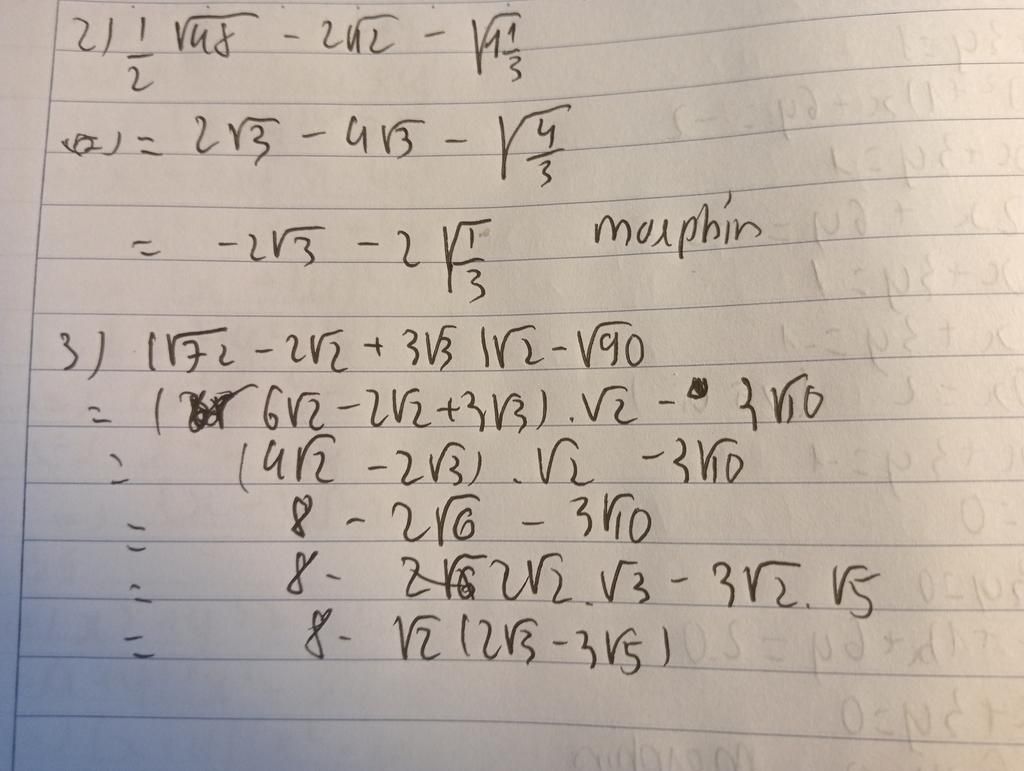 2) 1/2 √48 - 2√12 - √(1 1/3)
(2) = 2√3 - 4√3 - √(4/3)
= -2√3 - 2√(1/3) morphin
3) (√72 - 2√2 + 3√3)√2 - √90
= ( 6√2 - 2√2 + 3√3) . √2 - 3√10
= (4√2 - 2√3) . √2 - 3√10
= 8 - 2√6 - 3√10
= 8 - 2√2 . √3 - 3√2 . √5
= 8 - √2 (2√3 - 3√5)